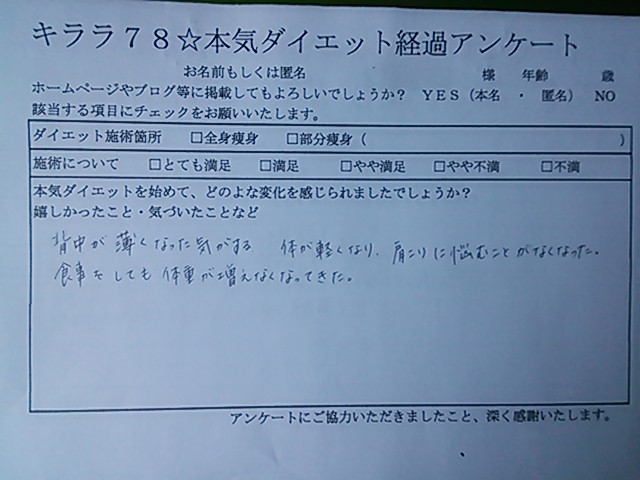 キララ78☆本気ダイエット経過アンケート
お名前もしくは匿名　様　年齢　歳
ホームページやブログ等に掲載してもよろしいでしょうか？　YES（本名　・　匿名）　NO
該当する項目にチェックをお願いいたします。
ダイエット施術箇所　□全身痩身　□部分痩身（　）
施術について　□とても満足　□満足　□やや満足　□やや不満　□不満
本気ダイエットを始めて、どのよな変化を感じられましたでしょうか？
嬉しかったこと・気づいたことなど
背中が薄くなった気がする　体が軽くなり、肩こりに悩むことがなくなった。
食事をしても体重が増えなくなってきた。
アンケートにご協力いただきましたこと、深く感謝いたします。